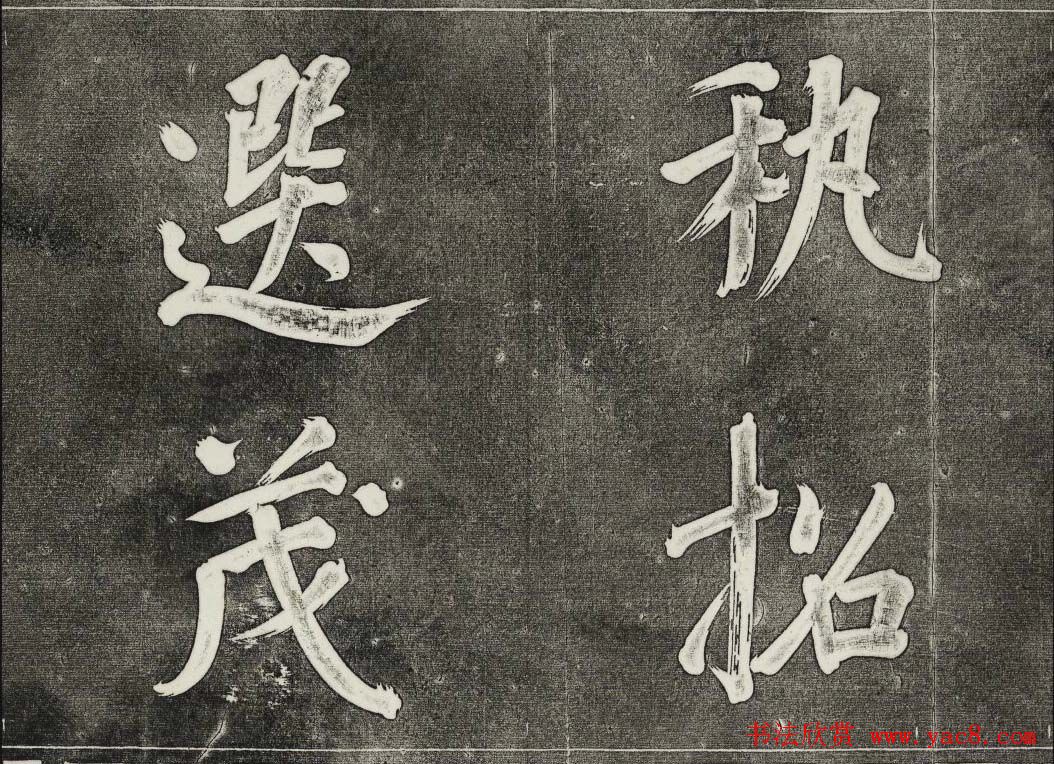 秇招
選茂
书法欣赏 www.yac8.com